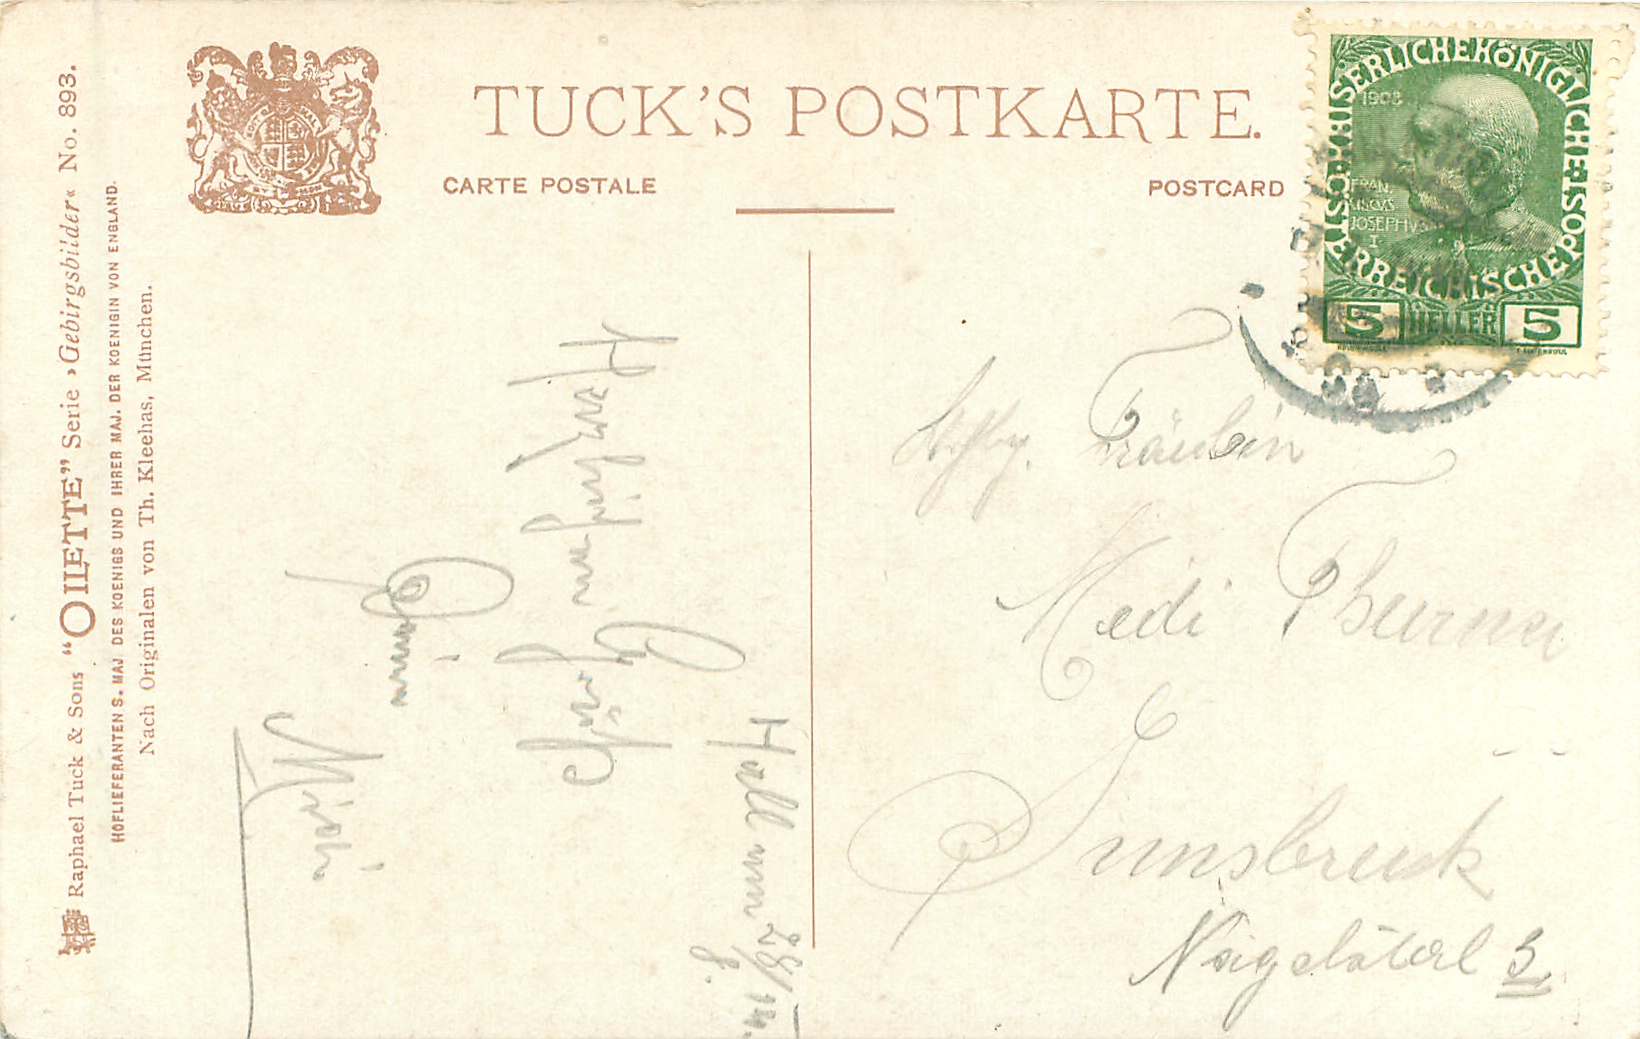 TUCK'S POSTKARTE.
CARTE POSTALE
POSTCARD
Raphael Tuck & Sons “OILETTE” Serie »Gebirgsbilder« No. 893.
HOFLIEFERANTEN S. MAJ. DES KOENIGS UND IHRER MAJ. DER KOENIGIN VON ENGLAND.
Nach Originalen von Th. Kleehas, München.
KAISERLICHE KÖNIGLICHE ÖSTERREICHISCHE POST
1908
FRAN.
CISCVS
JOSEPHVS
I
5 HELLER 5
Hall am 28/8. 14.
Herzlichen
Gruß
Fräulein
Medi Thurner
Innsbruck
3